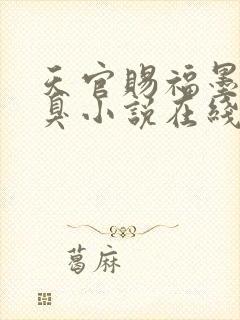 天官赐福墨
臭小说在线
葛麻